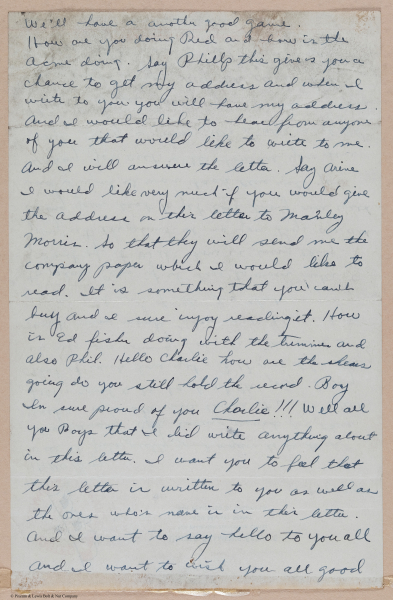 We'll have a another good game.
How are you doing Red and how is the
Acme doing. Say Phillp this gives you a
chance to get my address and when I
write to you you will have my address.
And I would like to hear from anyone
of you that would like to write to me.
And I will answere the letter. Say
I would like very much if you would give
the address on this letter to
Morris. So that they will send me the
company paper which I would like to
read. It is something that you can't
buy and I sure injoy reading it. How
is Ed fisher doing with the and
also Phil. Hello Charlie how are the shears
going do you still hold the record. Boy
Im sure proud of you Charlie!!! Well all
you Boys that I did write anything about
in this letter. I want you to feel that
this letter is written to you as well as
the ones who's name is in this letter.
And I want to say hello to you all
and I want to wish you all good
© Pheoll